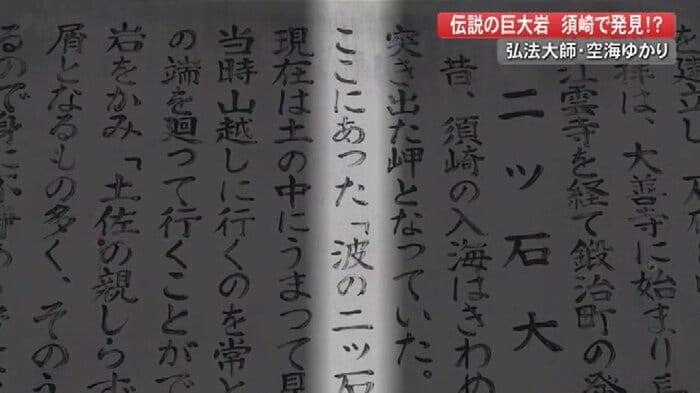 伝説の巨大岩 須崎で発見!?
弘法大師・空海ゆかり
を建立し
は、大善寺に始まり長
江雲寺を経て鍛冶町の発
二ツ石大
昔、須崎の入海はきわめ
突き出た岬となっていた。
ここにあった「波の二ッ石
現在は土の中にうまって見
当時山越しに行くのを常と
の端を廻って行くことがで
岩をかみ「土佐の親しらず
屑となるもの多く、そのう
るので身に